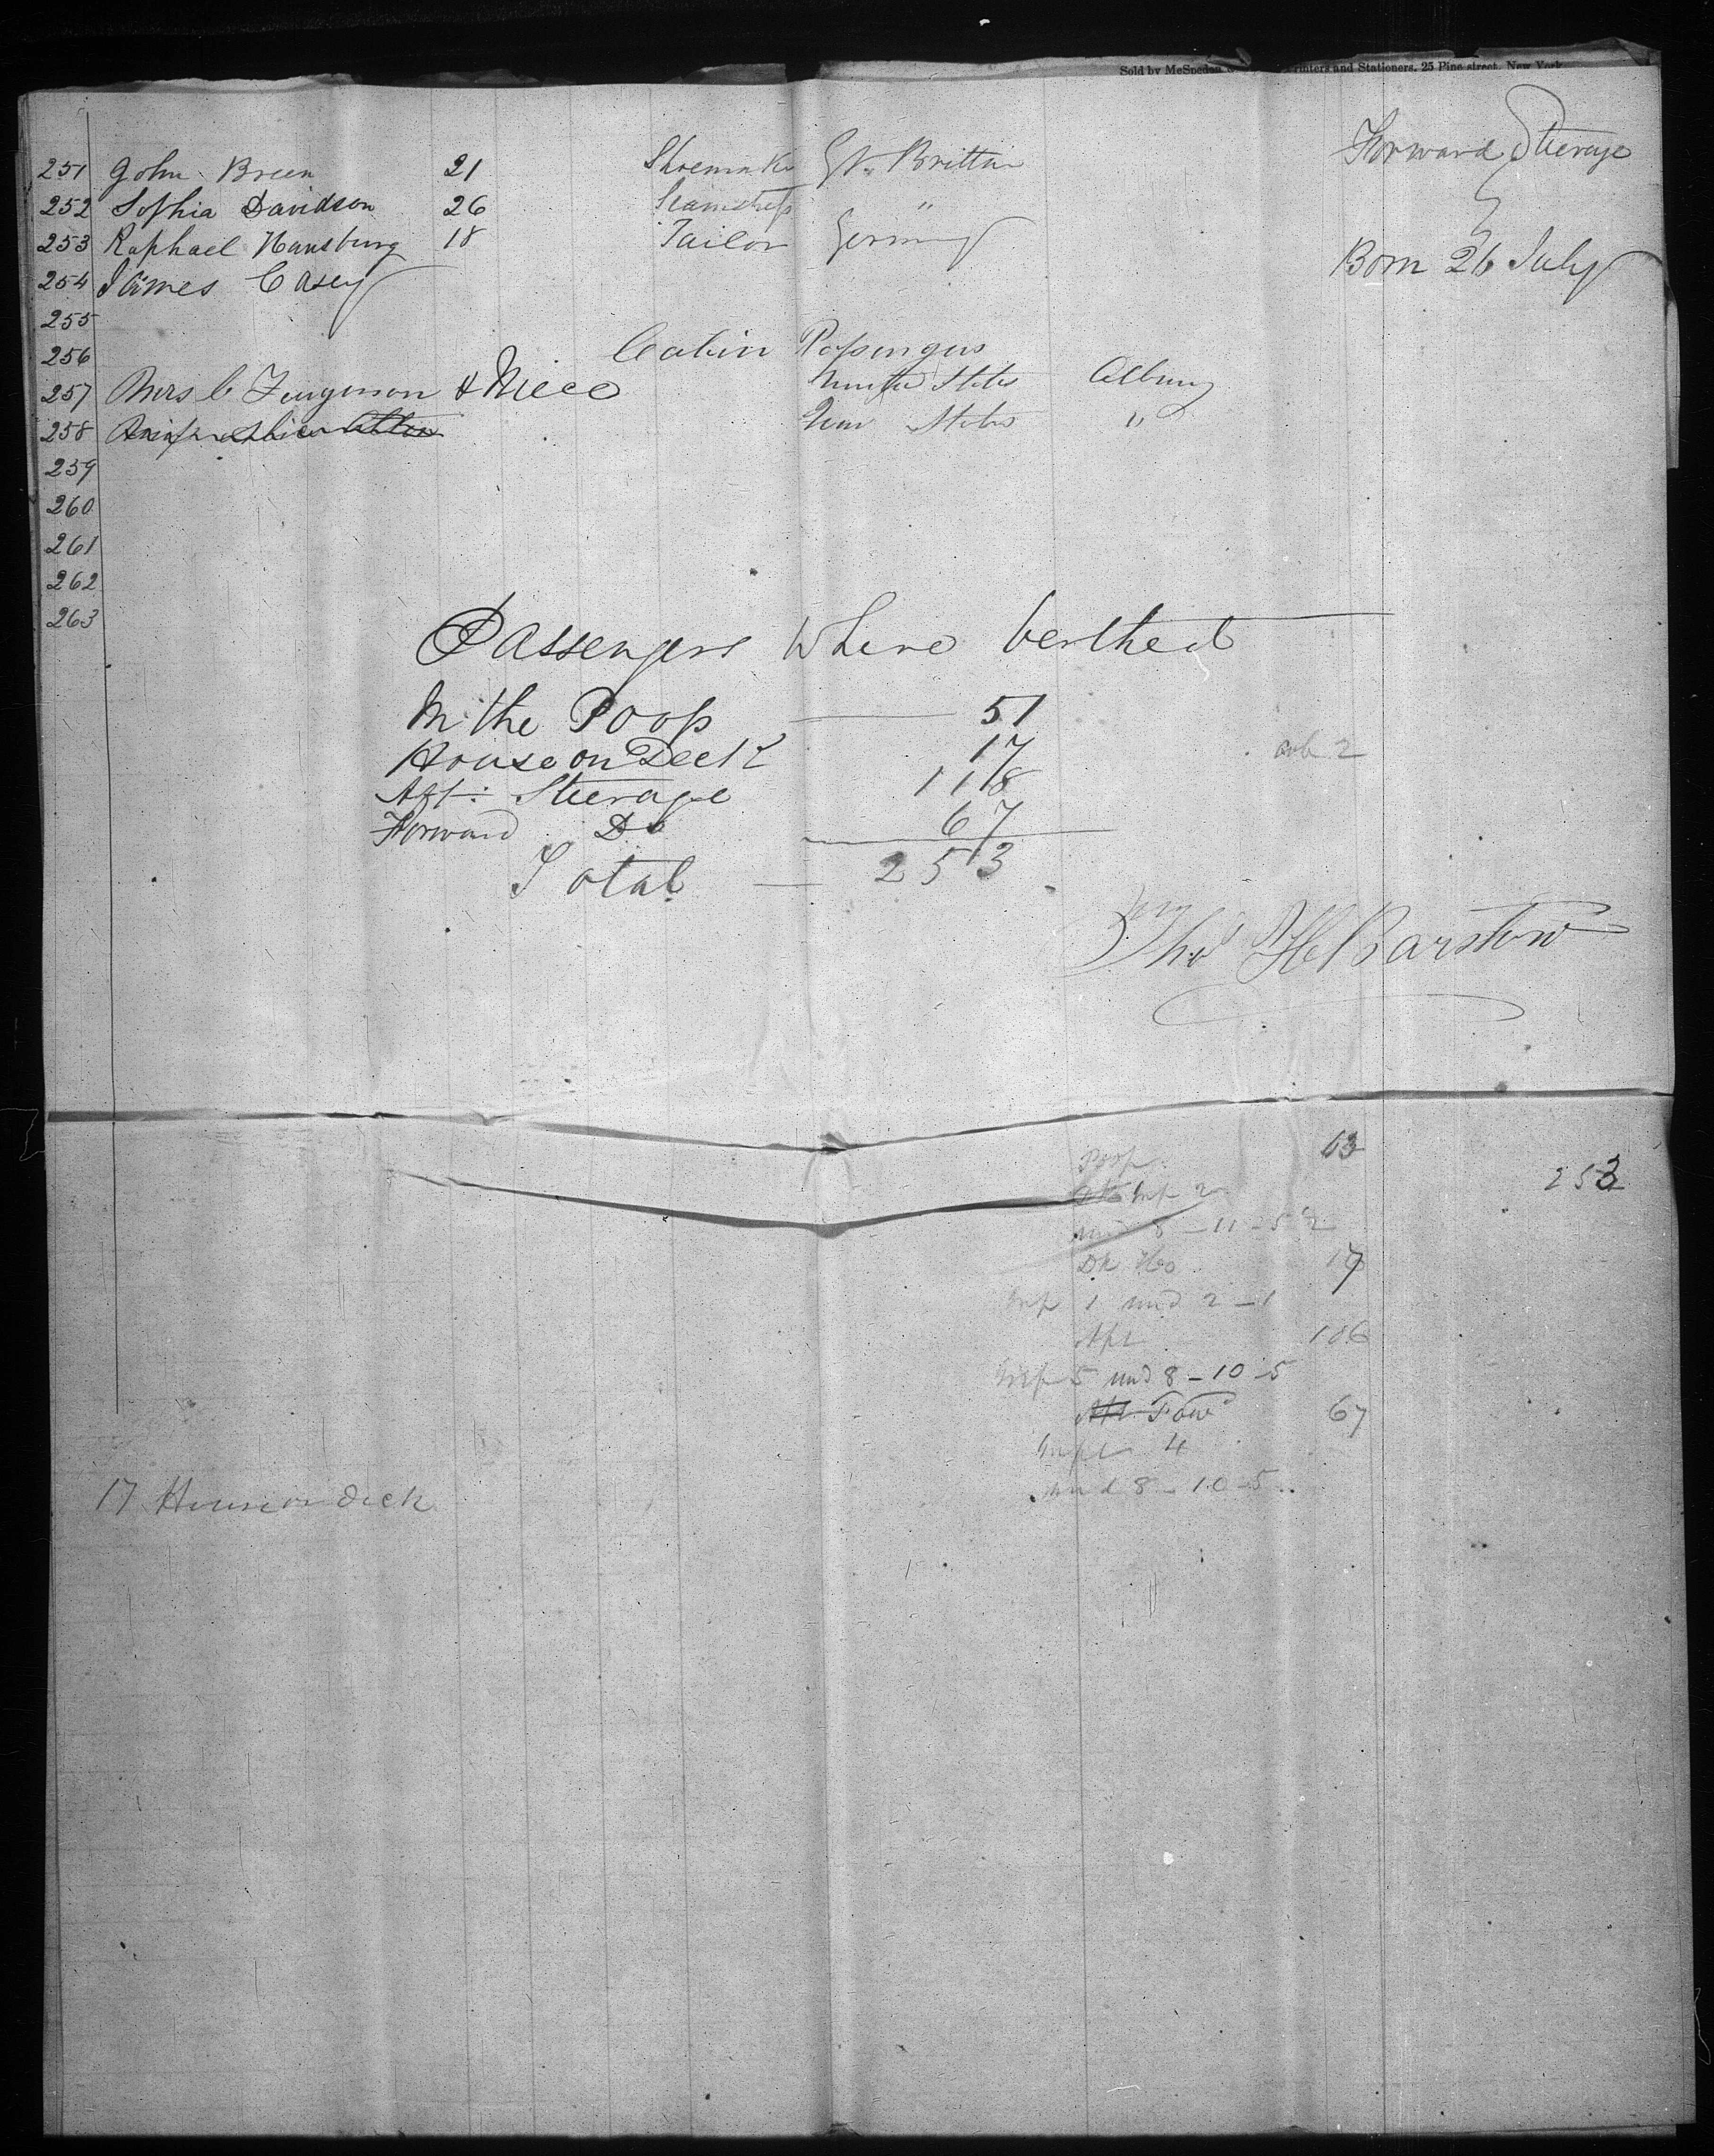 Sold by McSpedon & Printers and Stationers, 25 Pine street, New York
251 John Breen 21 Shoemaker Gt. Brittin Forward Steerage
252 Sophia Davidson 26 Seamstress "
253 Raphael Hansburg 18 Tailor Germany
254 James Casey Born 26 July
255
256 Cabin Passengers
257 Mrs C Ferguson & Niece United States Albany
258 States "
259
260
261
262
263
Passengers Where berthed
In the Poop 51
House on Deck 17
Aft: Steerage 118
Forward Do 67
Total 253
Thos H Barstow
Poop 63
253
2
8 - 11 - 5 2
Dk Ho 17
1 und 2 - 1
Aft 106
5 und 8 - 10 - 5
Forwd 67
4
und 8 - 10 - 5
17 House on deck